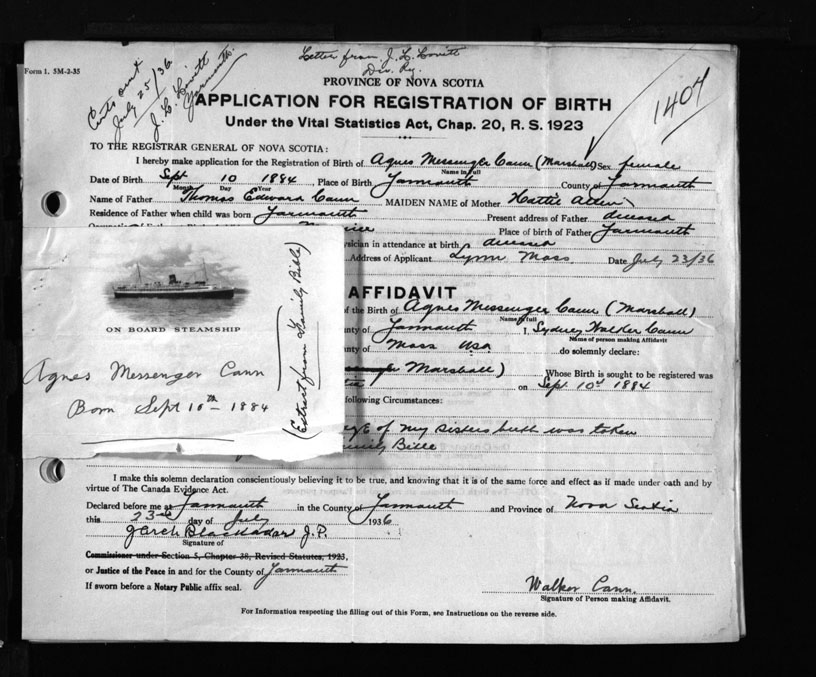 Form 1. 5M-2-35
Letter from J. L. Lovitt
Div. Rg.
Certs out
July 25/36
J. L. Lovitt
Yarmouth.
1407
PROVINCE OF NOVA SCOTIA
APPLICATION FOR REGISTRATION OF BIRTH
Under the Vital Statistics Act, Chap. 20, R. S. 1923
TO THE REGISTRAR GENERAL OF NOVA SCOTIA:
I hereby make application for the Registration of Birth of Agnes Messenger Cann (Marshall) Sex female
Name in Full
Date of Birth Sept 10 1884 Place of Birth Yarmouth County of Yarmouth
Month Day Year
Name of Father Thomas Edward Cann MAIDEN NAME of Mother Hattie
Residence of Father when child was born Yarmouth Present address of Father deceased
Place of birth of Father Yarmouth
sician in attendance at birth deceased
Address of Applicant Lynn Mass Date July 23/36
ON BOARD STEAMSHIP
Agnes Messenger Cann
Born Sept 10th - 1884
(Extract from Family Bible)
AFFIDAVIT
f the Birth of Agnes Messenger Cann (Marshall)
Name in full
nty of Yarmouth I, Sydney Walker Cann
Name of person making Affidavit
nty of Mass USA do solemnly declare:
Marshall) Whose Birth is sought to be registered was
on Sept. 10th 1884
following Circumstances:
of my sisters birth was taken
Family Bible
I make this solemn declaration conscientiously believing it to be true, and knowing that it is of the same force and effect as if made under oath and by
virtue of The Canada Evidence Act.
Declared before me at Yarmouth in the County of Yarmouth and Province of Nova Scotia
this 23rd day of July 1936
Blackadar J.P.
Signature of
Commissioner under Section 5, Chapter 38, Revised Statutes, 1923,
or Justice of the Peace in and for the County of Yarmouth
If sworn before a Notary Public affix seal.
Walker Cann.
Signature of Person making Affidavit.
For Information respecting the filling out of this Form, see Instructions on the reverse side.